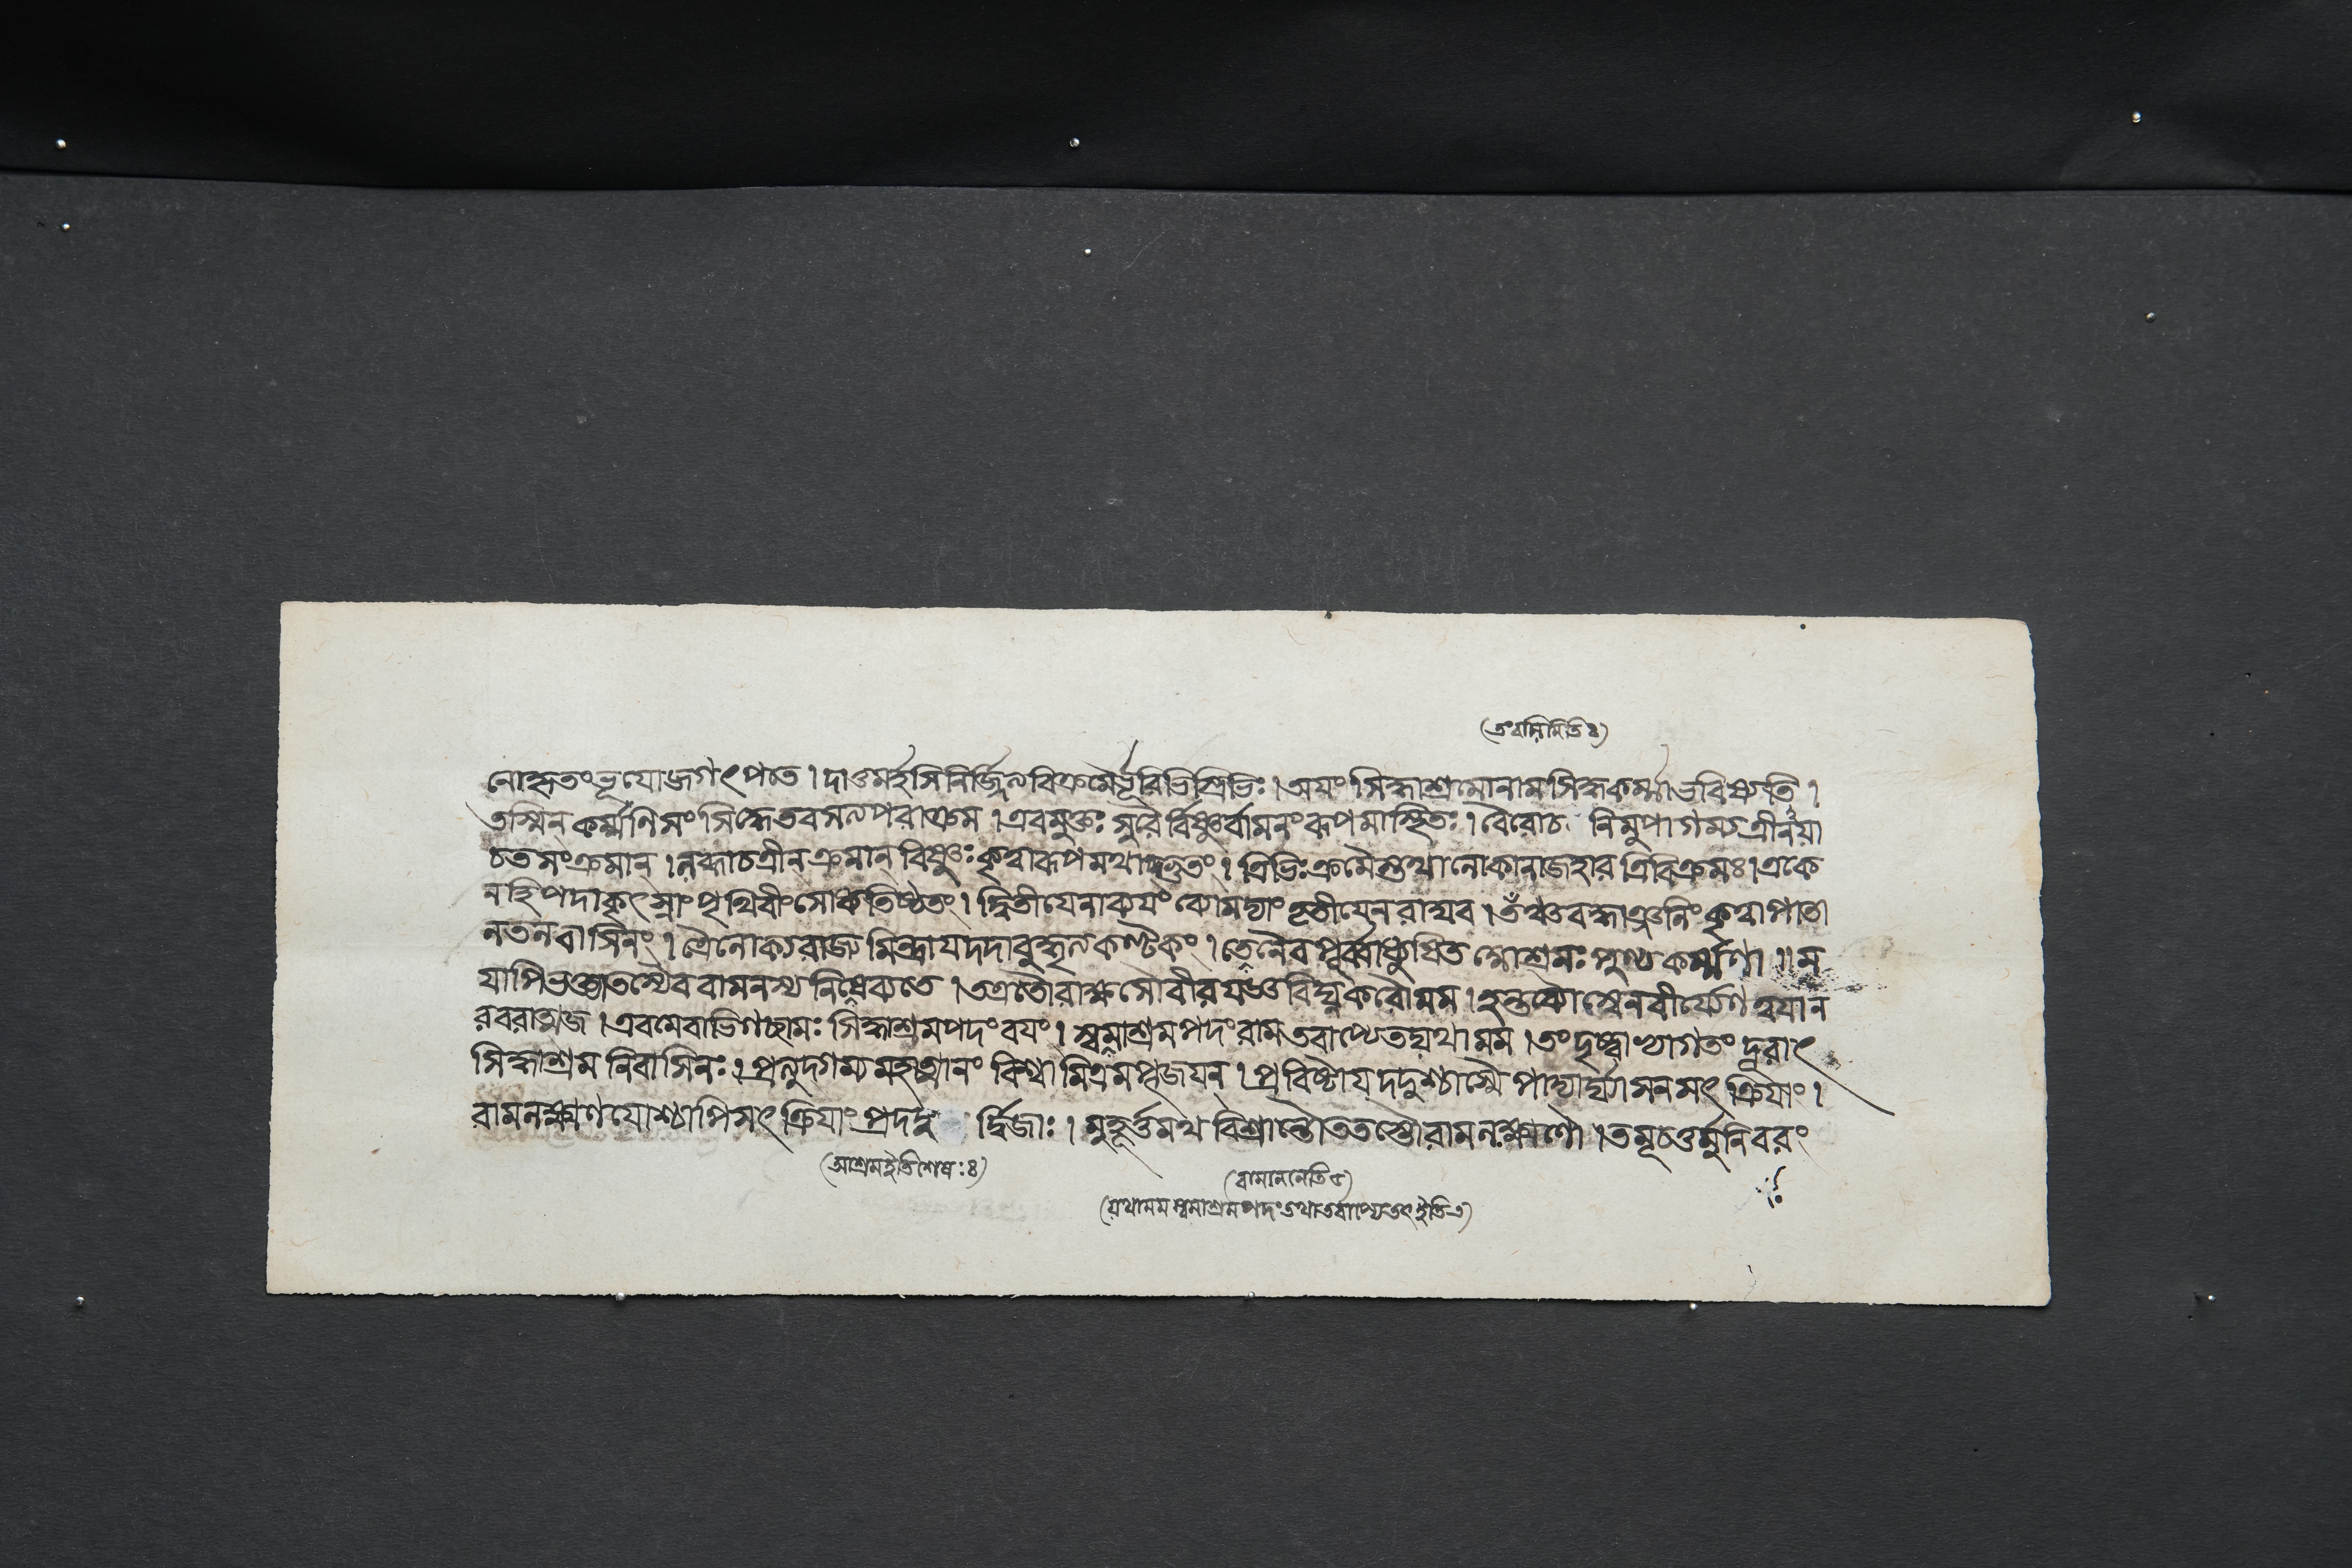 (তংবাসিমিতি৪)
নোহৃতংভূযোজগৎপতে। দাতুমর্হসিনির্জ্জিত্যবিক্রমৈর্ভূরিভিস্ত্রিভিঃ। অয়ং সিদ্ধাশ্রমোনামসিদ্ধকর্ম্মাভবিষ্যতি।
তস্মিন্ কর্ম্মণিসংসিদ্ধেতবসত্যপরাক্রম। এবমুক্তঃ সুরৈর্বিষ্ণুর্বামনংরূপমাস্থিতঃ। বৈরোচ নিমুপাগম্যত্রীনযা
চতসংক্রমান্। লব্ধাচত্রীন্ ক্রমান্ বিষ্ণুঃ কৃত্বারূপমথাদ্ভুতং। ত্রিভিঃ ক্রমৈস্তথালোকানাজহার ত্রিবিক্রমঃ। একে
নহিপদাকৃৎস্নাংপৃথিবীংসোধ্যতিষ্ঠত। দ্বিতীযেনাব্যযংব্যোমদ্যাংতৃতীযেনরাঘব। তঞ্চবদ্ধাঞ্জলিংকৃত্বাপাতা
লতলবাসিনং। ত্রৈলোক্যরাজ্যমিন্দ্রাযদদাবুদ্ধৃত্যকণ্টকং। তেনৈবপূর্ব্বাধ্যুষিত আশ্রমঃ পুণ্যকর্ম্মণা॥ ম
যাপিভক্ত্যাতস্যৈববামনস্যনিষেব্যতে। তত্রতৌরাক্ষসৌবীরযজ্ঞবিঘ্নকরৌমম। হন্তব্যৌস্বেনবীর্য্যেণত্বযান
রবরাত্মজ। এবমেবাভিগচ্ছামঃ সিদ্ধাশ্রমপদংবযং। স্বমাশ্রমপদংরামতবাপ্যেতদ্যথামম। তংদৃষ্ট্বাভ্যাগতংদূরাৎ
সিদ্ধাশ্রমনিবাসিনঃ। প্রত্যুদ্গম্যমহাত্মানং বিশ্বামিত্রমপূজযন্। প্রবিষ্টাযদদুশ্চাস্মৈপাদ্যার্ঘ্যাসনসৎক্রিযাং।
রামলক্ষ্মণযোশ্চাপিসৎক্রিযাংপ্রদদু র্দ্বিজাঃ। মুহূর্ত্তমথবিশ্রান্তৌততস্তৌরামলক্ষ্মণৌ। তমূচতুর্মুনিবরং
(আশ্রমইতিশেষঃ৪)
(বামাননেতি৫)
(যথামমস্বমাশ্রমপদংতথাতবাপ্যেতৎইতি৩)